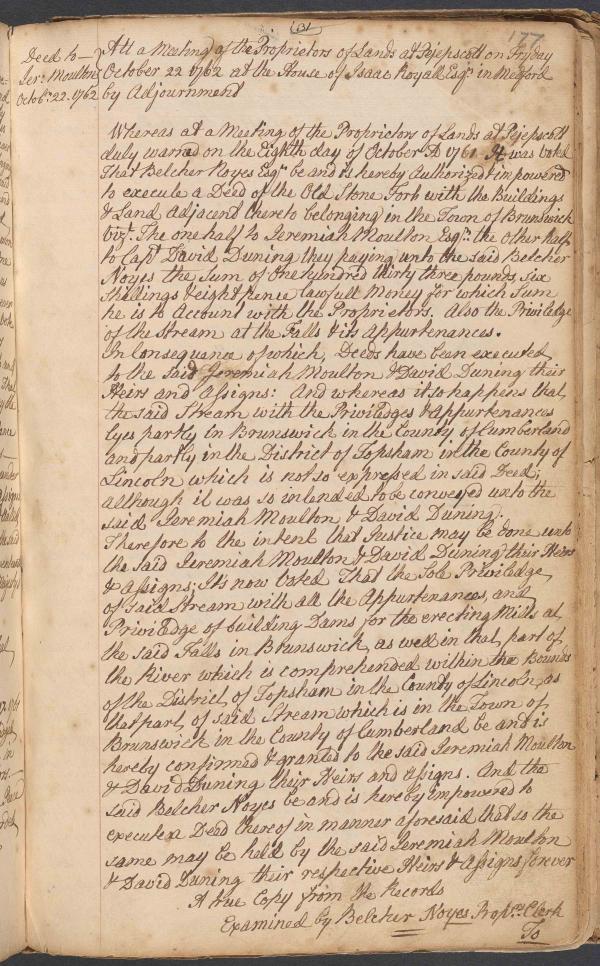 (3)
177
Deed to
Jer. Moulton
Octobr. 22. 1762
Att a Meeting of the Proprietors of Lands at Pejepscott on Fryday
October 22 1762 at the House of Isaac Royall Esqr. in Medford
by Adjournment
Whereas at a Meeting of the Proprietors of Lands at Pejepscott
duly warned on the Eighth day of October A 1761 It was Voted
That Belcher Noyes Esqr. be and is hereby Authorized & impowered
to execute a Deed of the Old Stone Fort with the Buildings
& Land Adjacent thereto belonging in the Town of Brunswick
vizt. The one half to Jeremiah Moulton Esqr. the other half
to Capt David Duning they paying unto the said Belcher
Noyes the Sum of One hundred thirty three pounds, six
Shillings & eight pence lawfull Money for which Sum
he is to Account with the Proprietors. Also the Priviledge
of the Stream at the Falls & its Appurtenances.
In Consequance of which, Deeds have been executed
to the said Jeremiah Moulton & David Duning their
Heirs and Assigns: And whereas it so happens that
the said Stream with the Priviledges & Appurtenances
lyes partly in Brunswick in the County of Cumberland
and partly in the District of Topsham in the County of
Lincoln which is not so expressed in said Deed;
although it was so intended to be conveyed unto the
said Jeremiah Moulton & David Duning.
Therefore to the intent that Justice may be done unto
the said Jeremiah Moulton & David Duning their Heirs
& Assigns; It's now Voted That the Sole Priviledge
of said Stream with all the Appurtenances, and
Priviledge of building Dams for the erecting Mills at
the said Falls in Brunswick, as well in that part of
the River which is comprehended within the Bounds
of the District of Topsham in the County of Lincoln, as
that part of said Stream which is in the Town of
Brunswick in the County of Cumberland be and is
hereby confirmed & granted to the said Jeremiah Moulton
& David Duning their Heirs and Assigns. And the
said Belcher Noyes be and is hereby impowered to
execute a Deed thereof in manner aforesaid that so the
same may be held by the said Jeremiah Moulton
& David Duning their respective Heirs & Assigns forever
A true Copy from the Records
Examined by Belcher Noyes Proprs. Clerk
To